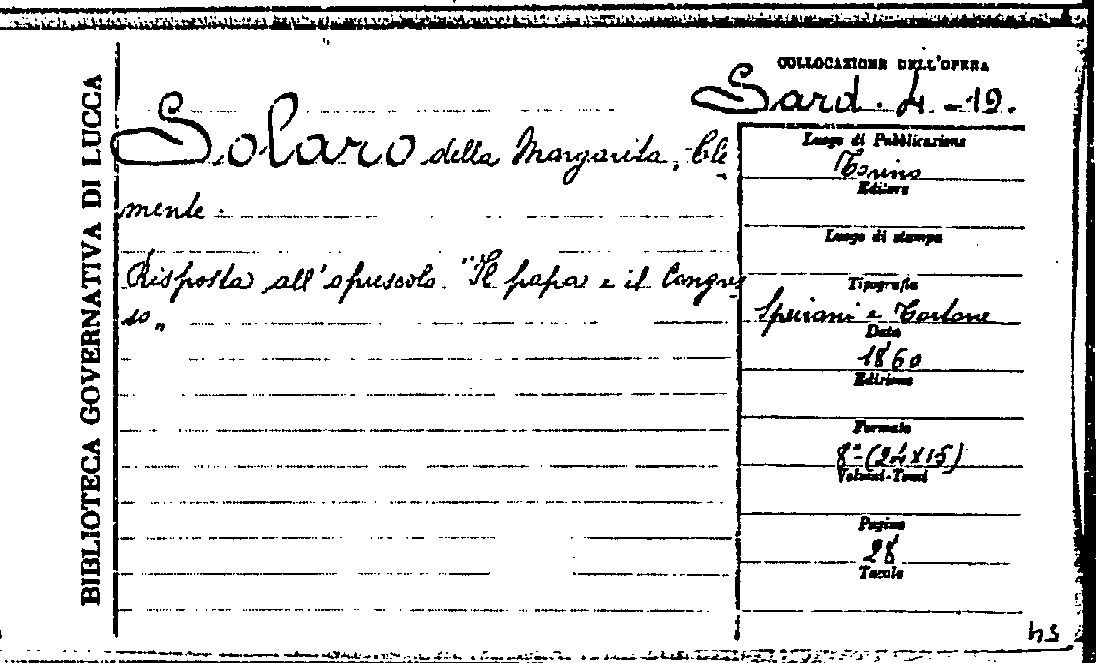 BIBLIOTECA GOVERNATIVA DI LUCCA
COLLOCAZIONE DELL'OPERA
Sard. 4.-19.
Solaro della Margarita, Cle
mente.
Risposta all'opuscolo "Il papa e il Congres
so"
Luogo di Pubblicazione
Torino
Editore
Luogo di stampa
Tipografia
Speirani e Tortone
Data
1860
Edizione
Formato
8°-(24x15)
Volumi-Tomi
Pagine
28
Tavole
54